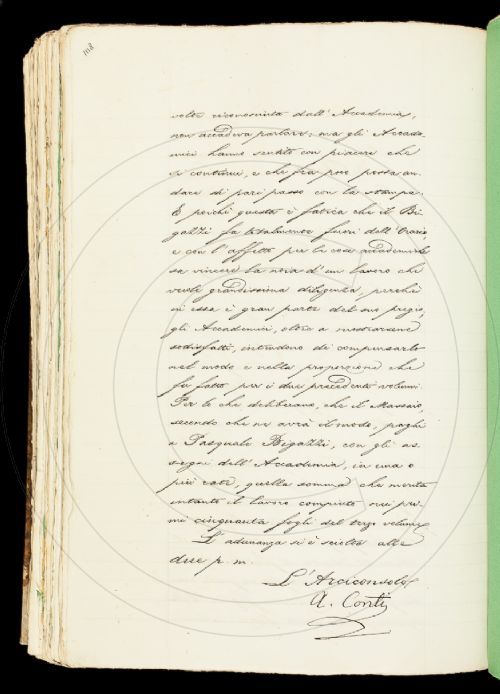 108
volte riconosciuta dall'Accademia,
non accadeva parlare: ma gli Accade-
mici hanno sentito con piacere che
si continui, e che fra poco possa an-
dare di pari passo con la stampa.
E perchè questa è fatica che il Bi-
gazzi fa totalmente fuori dell'Orario
e con l'affetto per le cose accademiche
sa vincere la noia d'un lavoro che
vuole grandissima diligenza, perchè
in essa è gran parte del suo pregio,
gli Accademici, oltre a mostrarsene
sodisfatti, intendono di compensarlo
nel modo e nella proporzione che
fu fatto per i due precedenti volumi.
Per lo che deliberano, che il Massaio,
secondo che ne avrà il modo, paghi
a Pasquale Bigazzi, con gli as-
segni dell'Accademia, in una o
più rate, quella somma che merita
intanto il lavoro compiuto sui pri-
mi cinquanta fogli del terzo volume.
L'adunanza si è sciolta alle
due p. m.
L'Arciconsolo
A. Conti